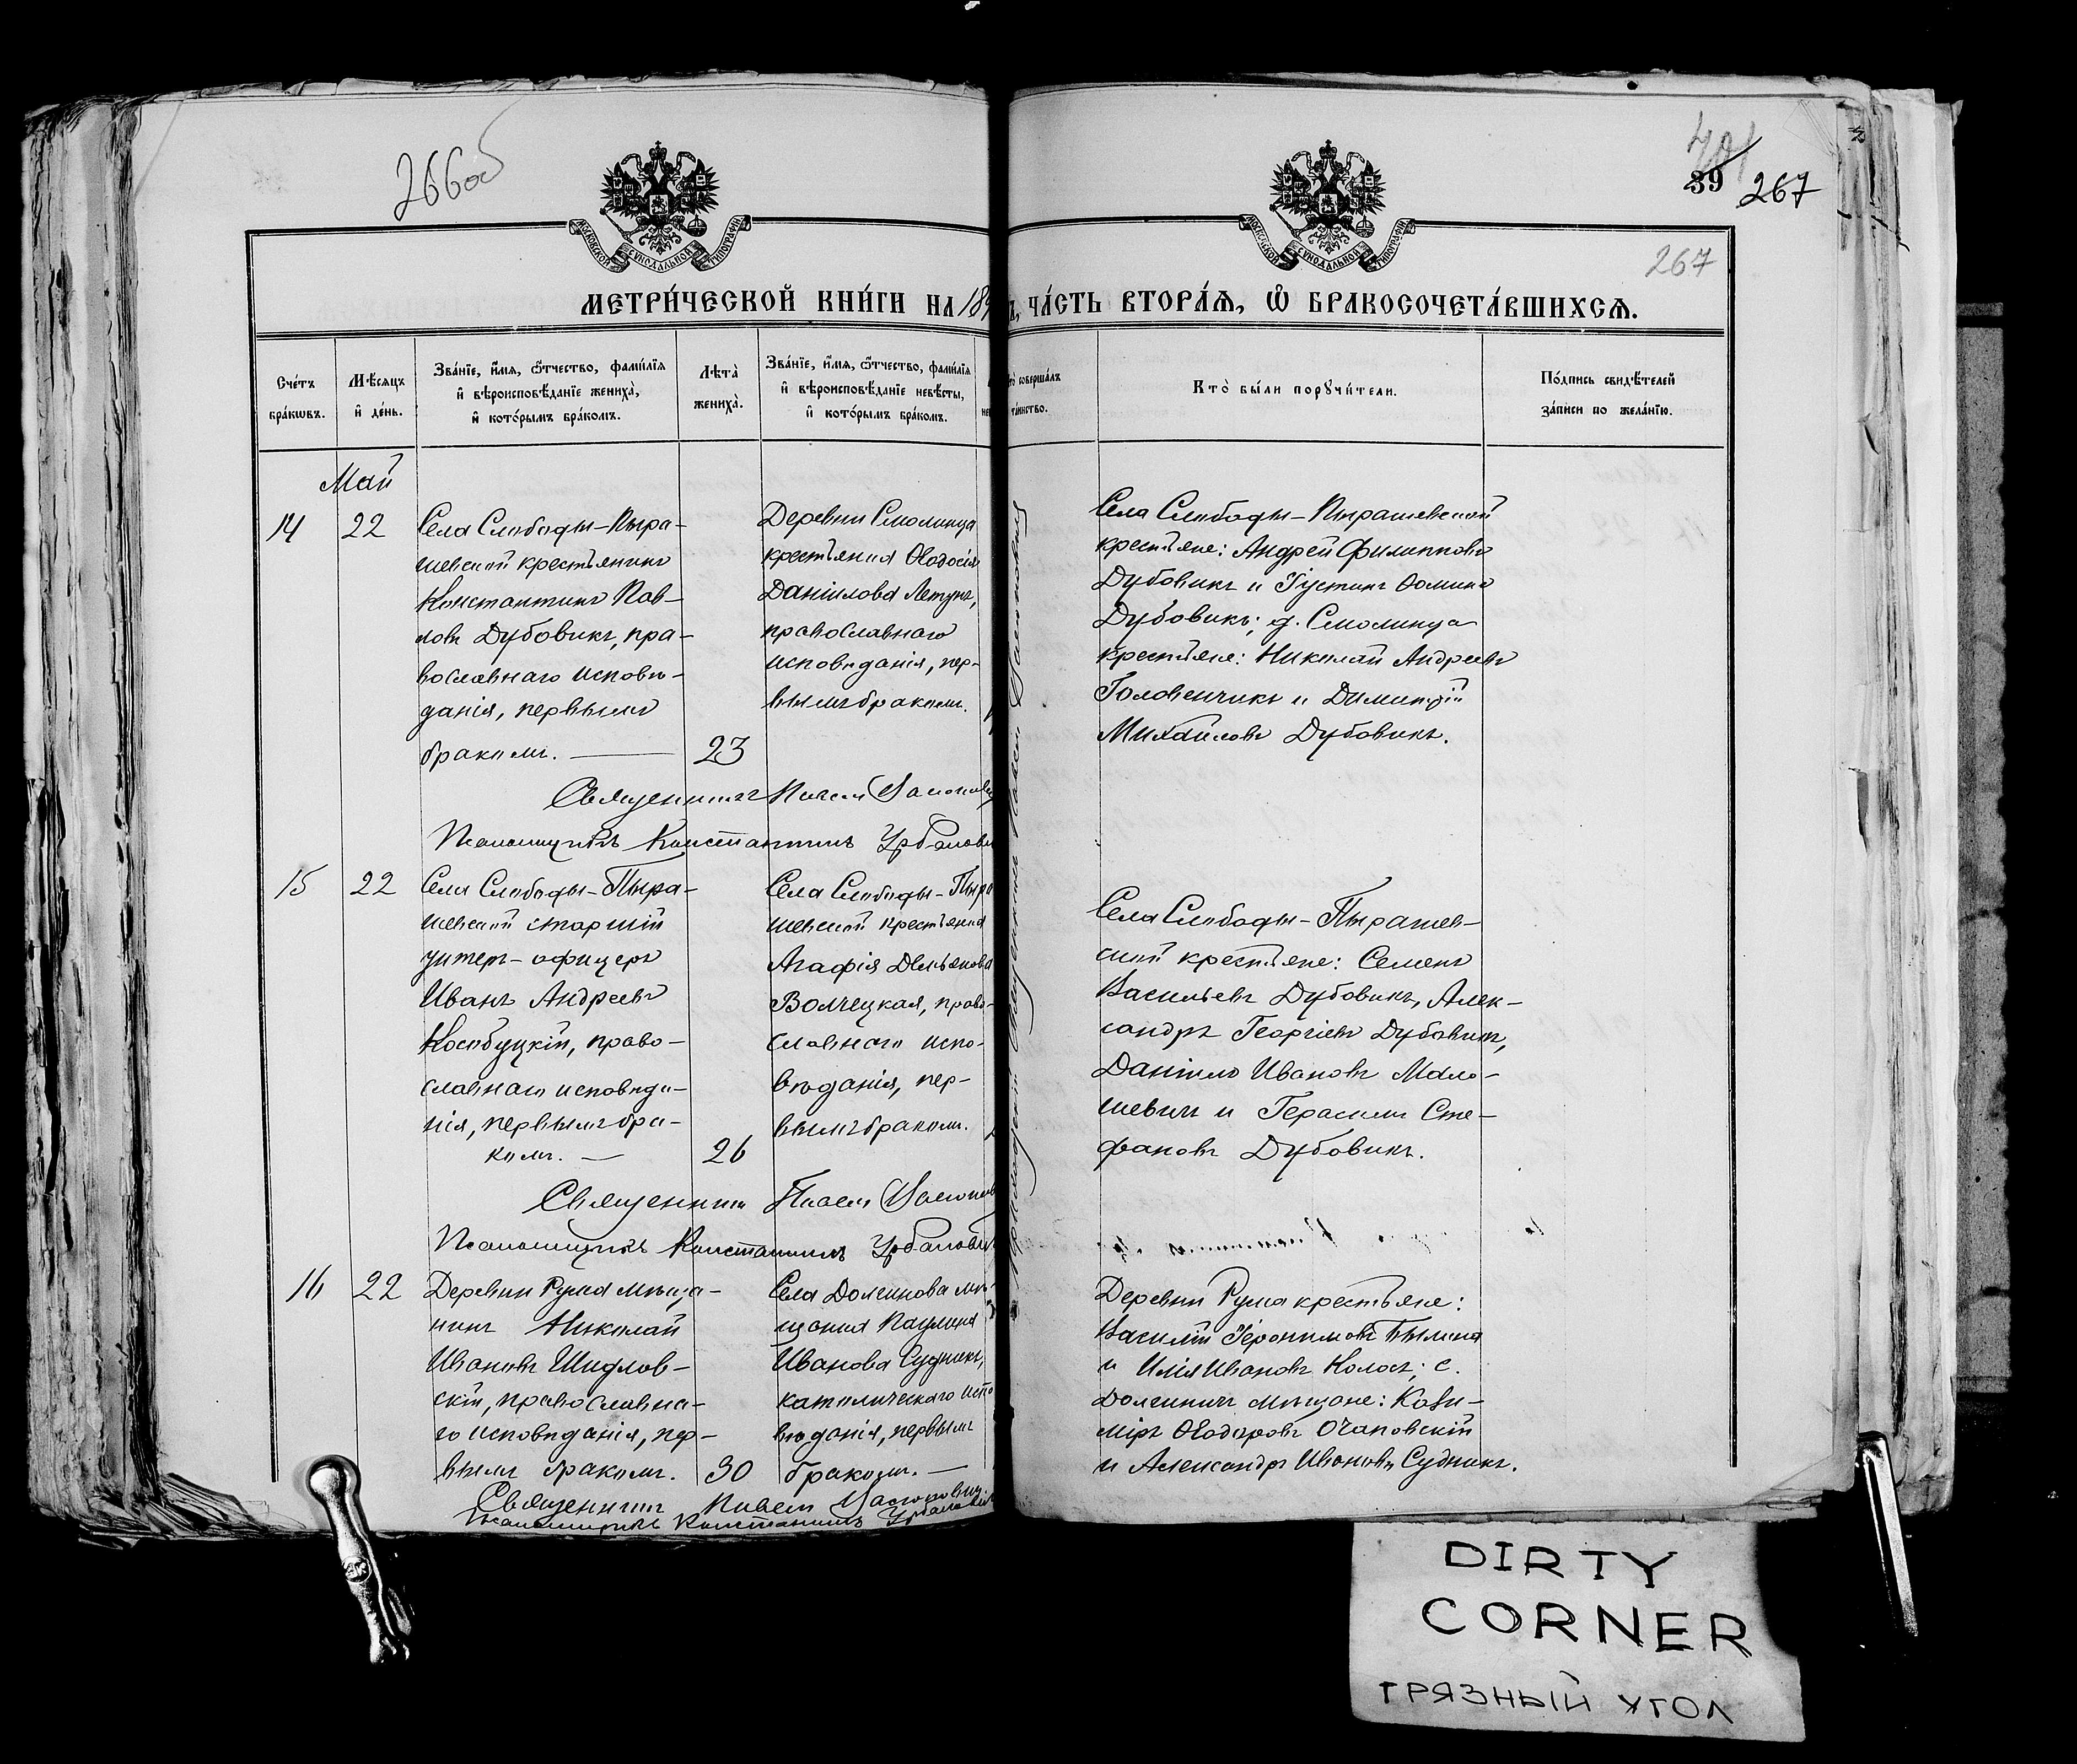 266об
39 267
267
МОСКОВСКОЙ СѴНОДАЛЬНОЙ ТИПОГРАФІИ
МОСКОВСКОЙ СѴНОДАЛЬНОЙ ТИПОГРАФІИ
МЕТРИ́ЧЕСКОЙ КНИ́ГИ НА 189
ЧА́СТЬ ВТОРА́Ѧ, Ѡ҆ БРАКОСОЧЕТА́ВШИХСѦ.
Сче́тъ
бра́кѡвъ.
Мѣ́сѧцъ
и҆ де́нь.
Зва́нїе, и҆́мѧ, ѻ҆́тчество, фамї́лїѧ
и҆ вѣроисповѣ́данїе жениха̀,
и҆ кото́рымъ бра́комъ.
Лѣ́та
жениха̀.
Зва́нїе, и҆́мѧ, ѻ҆́тчество, фамї́лїѧ
и҆ вѣроисповѣ́данїе невѣ́сты,
и҆ кото́рымъ бра́комъ.
соверша́лъ
та́инство.
Кто̀ бы́ли порꙋчи́тели.
По́дпись свидѣ́телей
за́писи по жела́нїю.
Май
14 22
Села Слободы-Пыра-
шевской крестьянинъ
Константинъ Пав-
ловъ Дубовикъ, пра-
вославнаго исповѣ-
данія, первымъ
бракомъ. — 23
Деревни Смолинца
крестьянка Ѳеодосія
Даніилова Летунъ,
православнаго
исповѣданія, пер-
вымъ бракомъ.
Села Слободы-Пырашевской
крестьяне: Андрей Филипповъ
Дубовикъ и Іустинъ Ѳоминъ
Дубовикъ; д. Смолинца
крестьяне: Николай Андреевъ
Головенчикъ и Димитрій
Михайловъ Дубовикъ.
Священникъ Павелъ
Псаломщикъ Константинъ Урбанови
15 22
Села Слободы-Пыра-
шевской старшій
унтеръ-офицеръ
Иванъ Андреевъ
Кособуцкій, право-
славнаго исповѣда-
нія, первымъ бра-
комъ. — 26
Села Слободы-Пыра
шевской крестьянка
Агафія Демьянова
Волчецкая, право-
славнаго испо-
вѣданія, пер-
вымъ бракомъ.
Села Слободы-Пырашев-
ской крестьяне: Семенъ
Васильевъ Дубовикъ, Алек-
сандръ Георгіевъ Дубовикъ,
Даніилъ Ивановъ Мало-
шевичъ и Герасимъ Сте-
фановъ Дубовикъ.
Священникъ Павелъ
Псаломщикъ Константинъ Урбанови
16 22
Деревни Рума мѣща-
нинъ Николай
Ивановъ Шидлов-
скій, православна-
го исповѣданія, пер-
вымъ бракомъ. 30
Села Долгинова мѣ-
щанка Паулина
Иванова Судникъ,
католическаго испо
вѣданія, первымъ
бракомъ. —
Деревни Рума крестьяне:
Василій Іеронимовъ Былина
и Илія Ивановъ Колосъ; с.
мѣщане: Кази-
міръ Ѳеодоровъ Очаповскій
и Александръ Ивановъ Судникъ.
Священникъ Павелъ
Псаломщикъ Константинъ Урбанович
DIRTY
CORNER
ГРЯЗНЫЙ УГОЛ